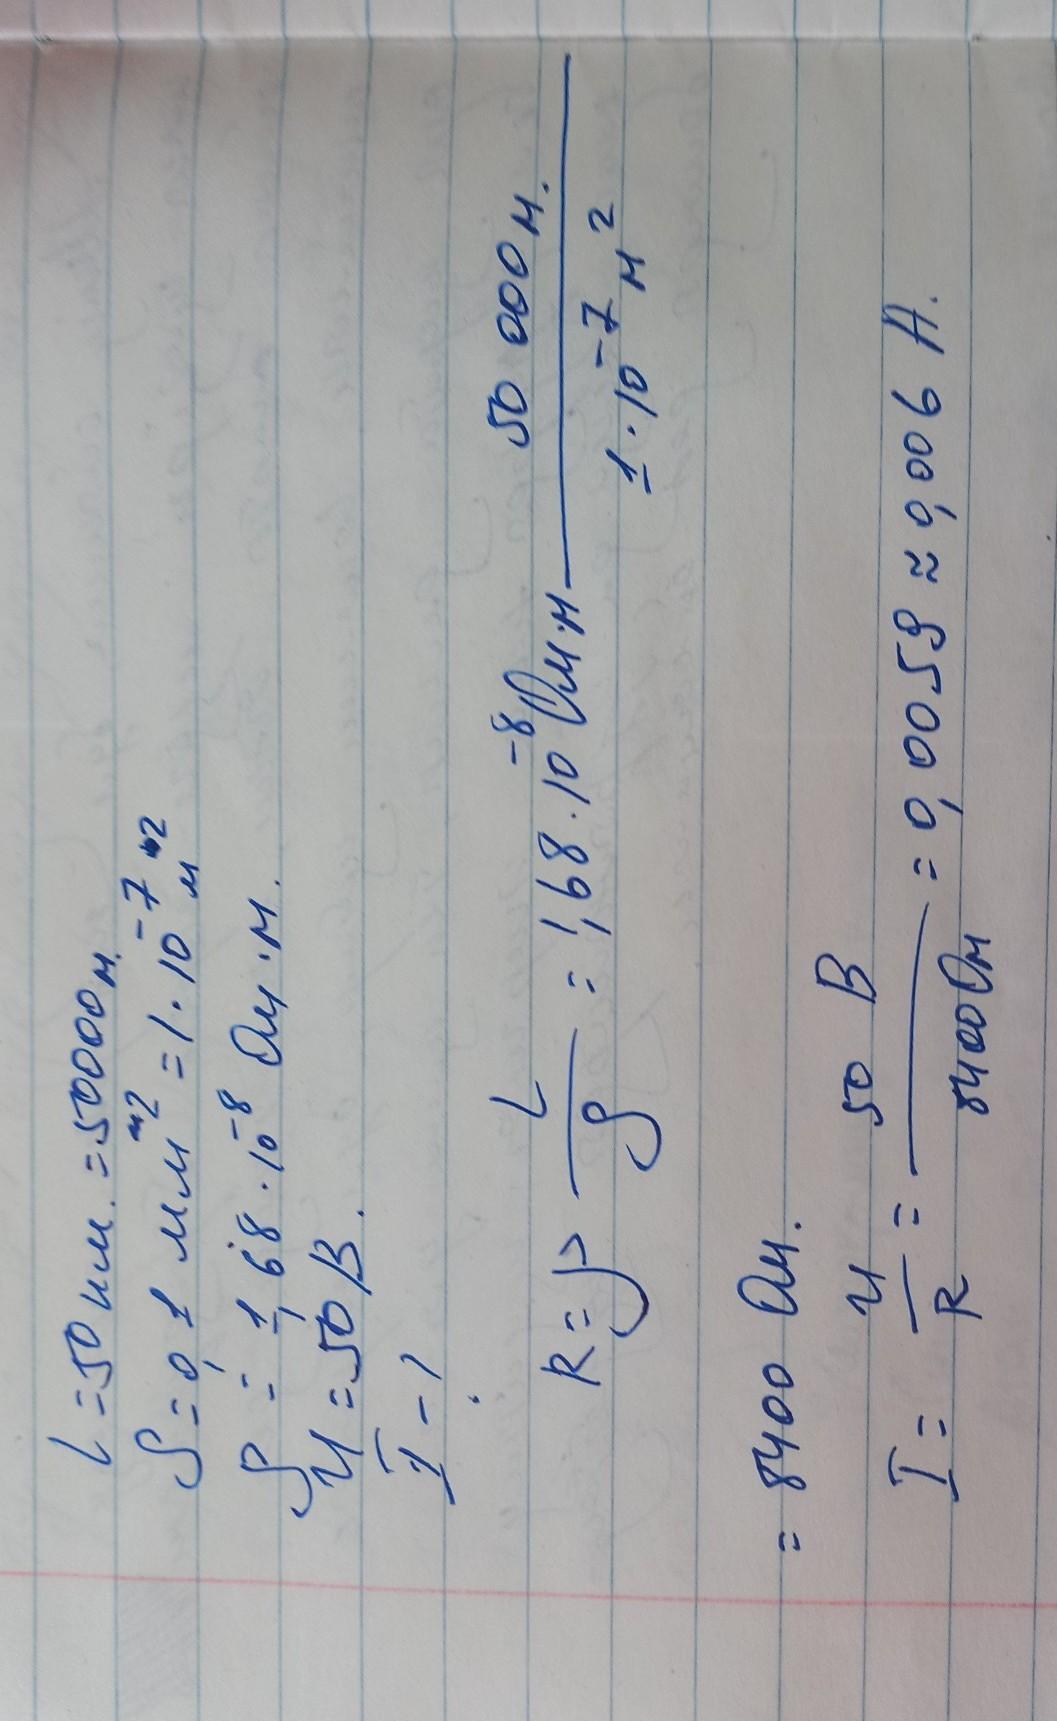 L = 50 км. = 50000 м.
S = 0,1 мм² = 1 · 10⁻⁷ м²
ρ = 1,68 · 10⁻⁸ Ом · м.
U = 50 В.
I - ?
R = ρ L/S = 1,68 · 10⁻⁸ Ом · м 50 000 м. / 1 · 10⁻⁷ м²
= 8400 Ом.
I = U/R = 50 В / 8400 Ом = 0,0059 ≈ 0,006 А.